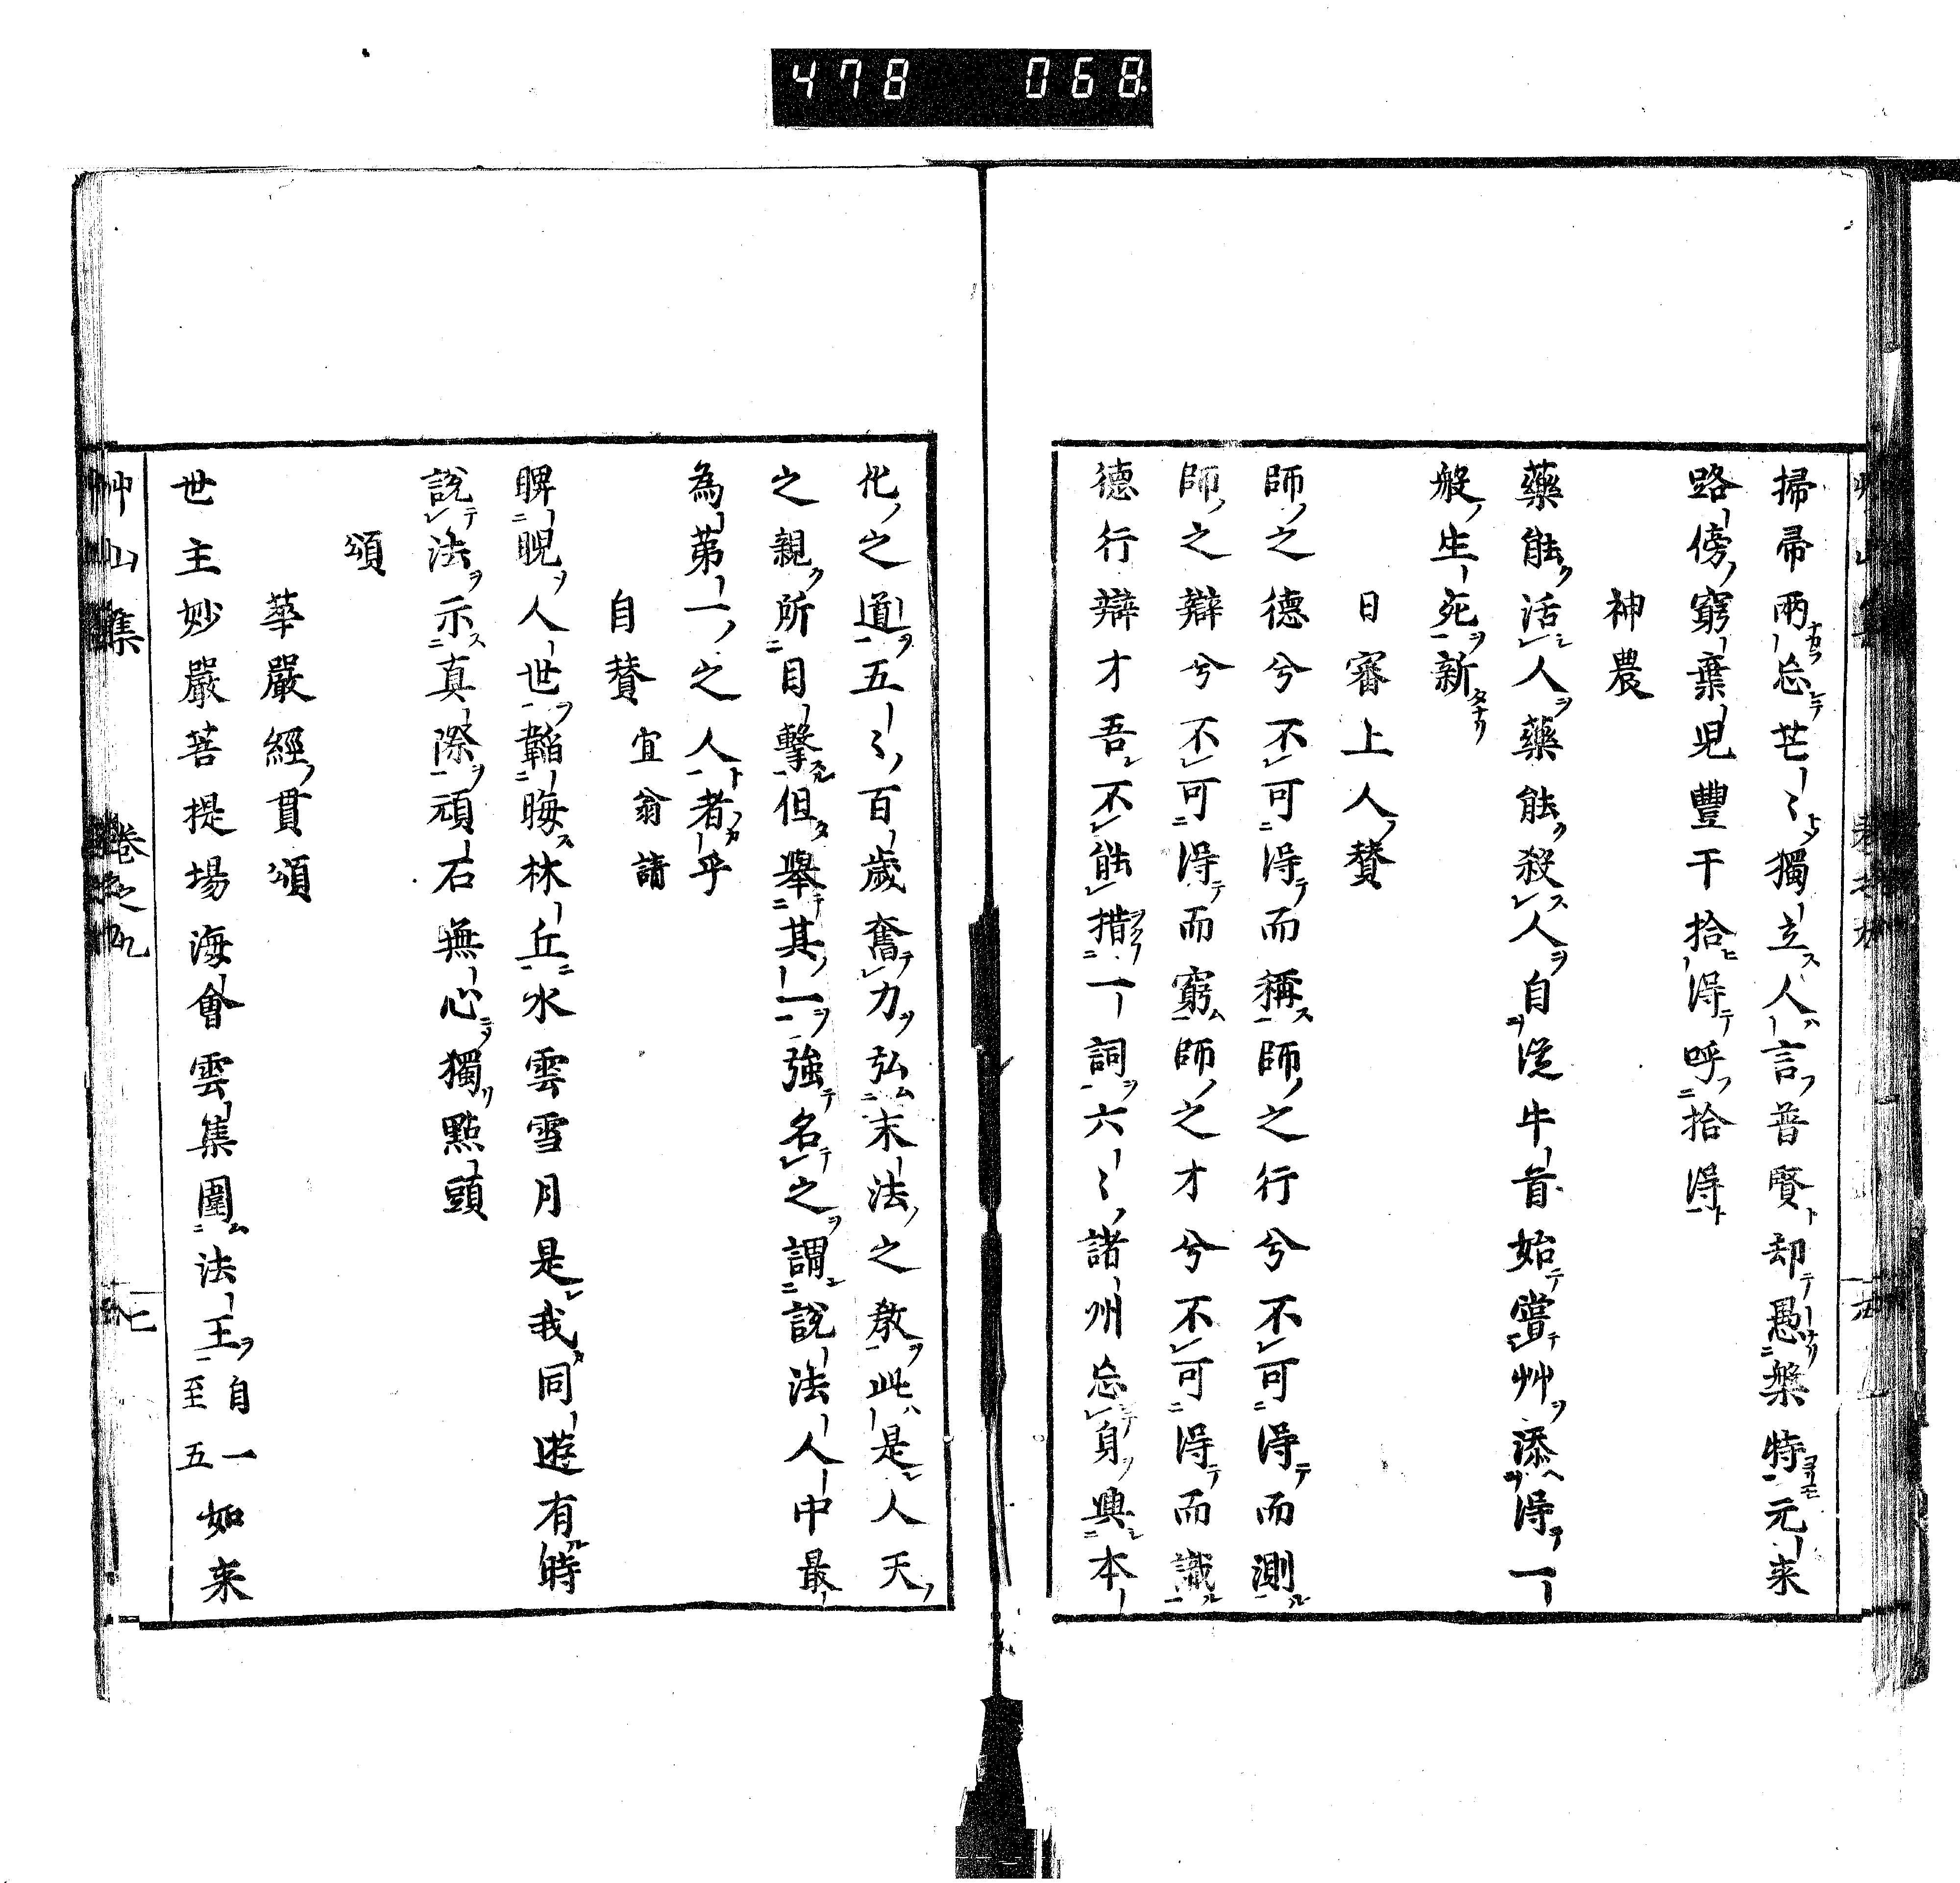 478 068
掃帚兩忘芒〻獨立人言普賢却愚槃特元来
路傍窮棄児豐干拾得呼拾得
神農
藥能活人藥能殺人自從牛首始嘗艸添得一
般生死新
日審上人賛
師之德兮不可得而稱師之行兮不可得而測
師之辯兮不可得而窮師之才兮不可得而識
德行辯才吾不能措一詞六〻諸州忘身興本
化之道五〻百歲奮力弘末法之教此是人天
之親所目擊但舉其一強名之謂說法人中最
為第一之人者乎
自賛 宜翁請
睥睨人世韜晦林丘水雲雪月是我同遊有時
說法示真際頑石無心獨點頭
頌
華嚴經貫頌
世主妙嚴菩提場海會雲集圍法王自一至五如来
艸山集 卷之九